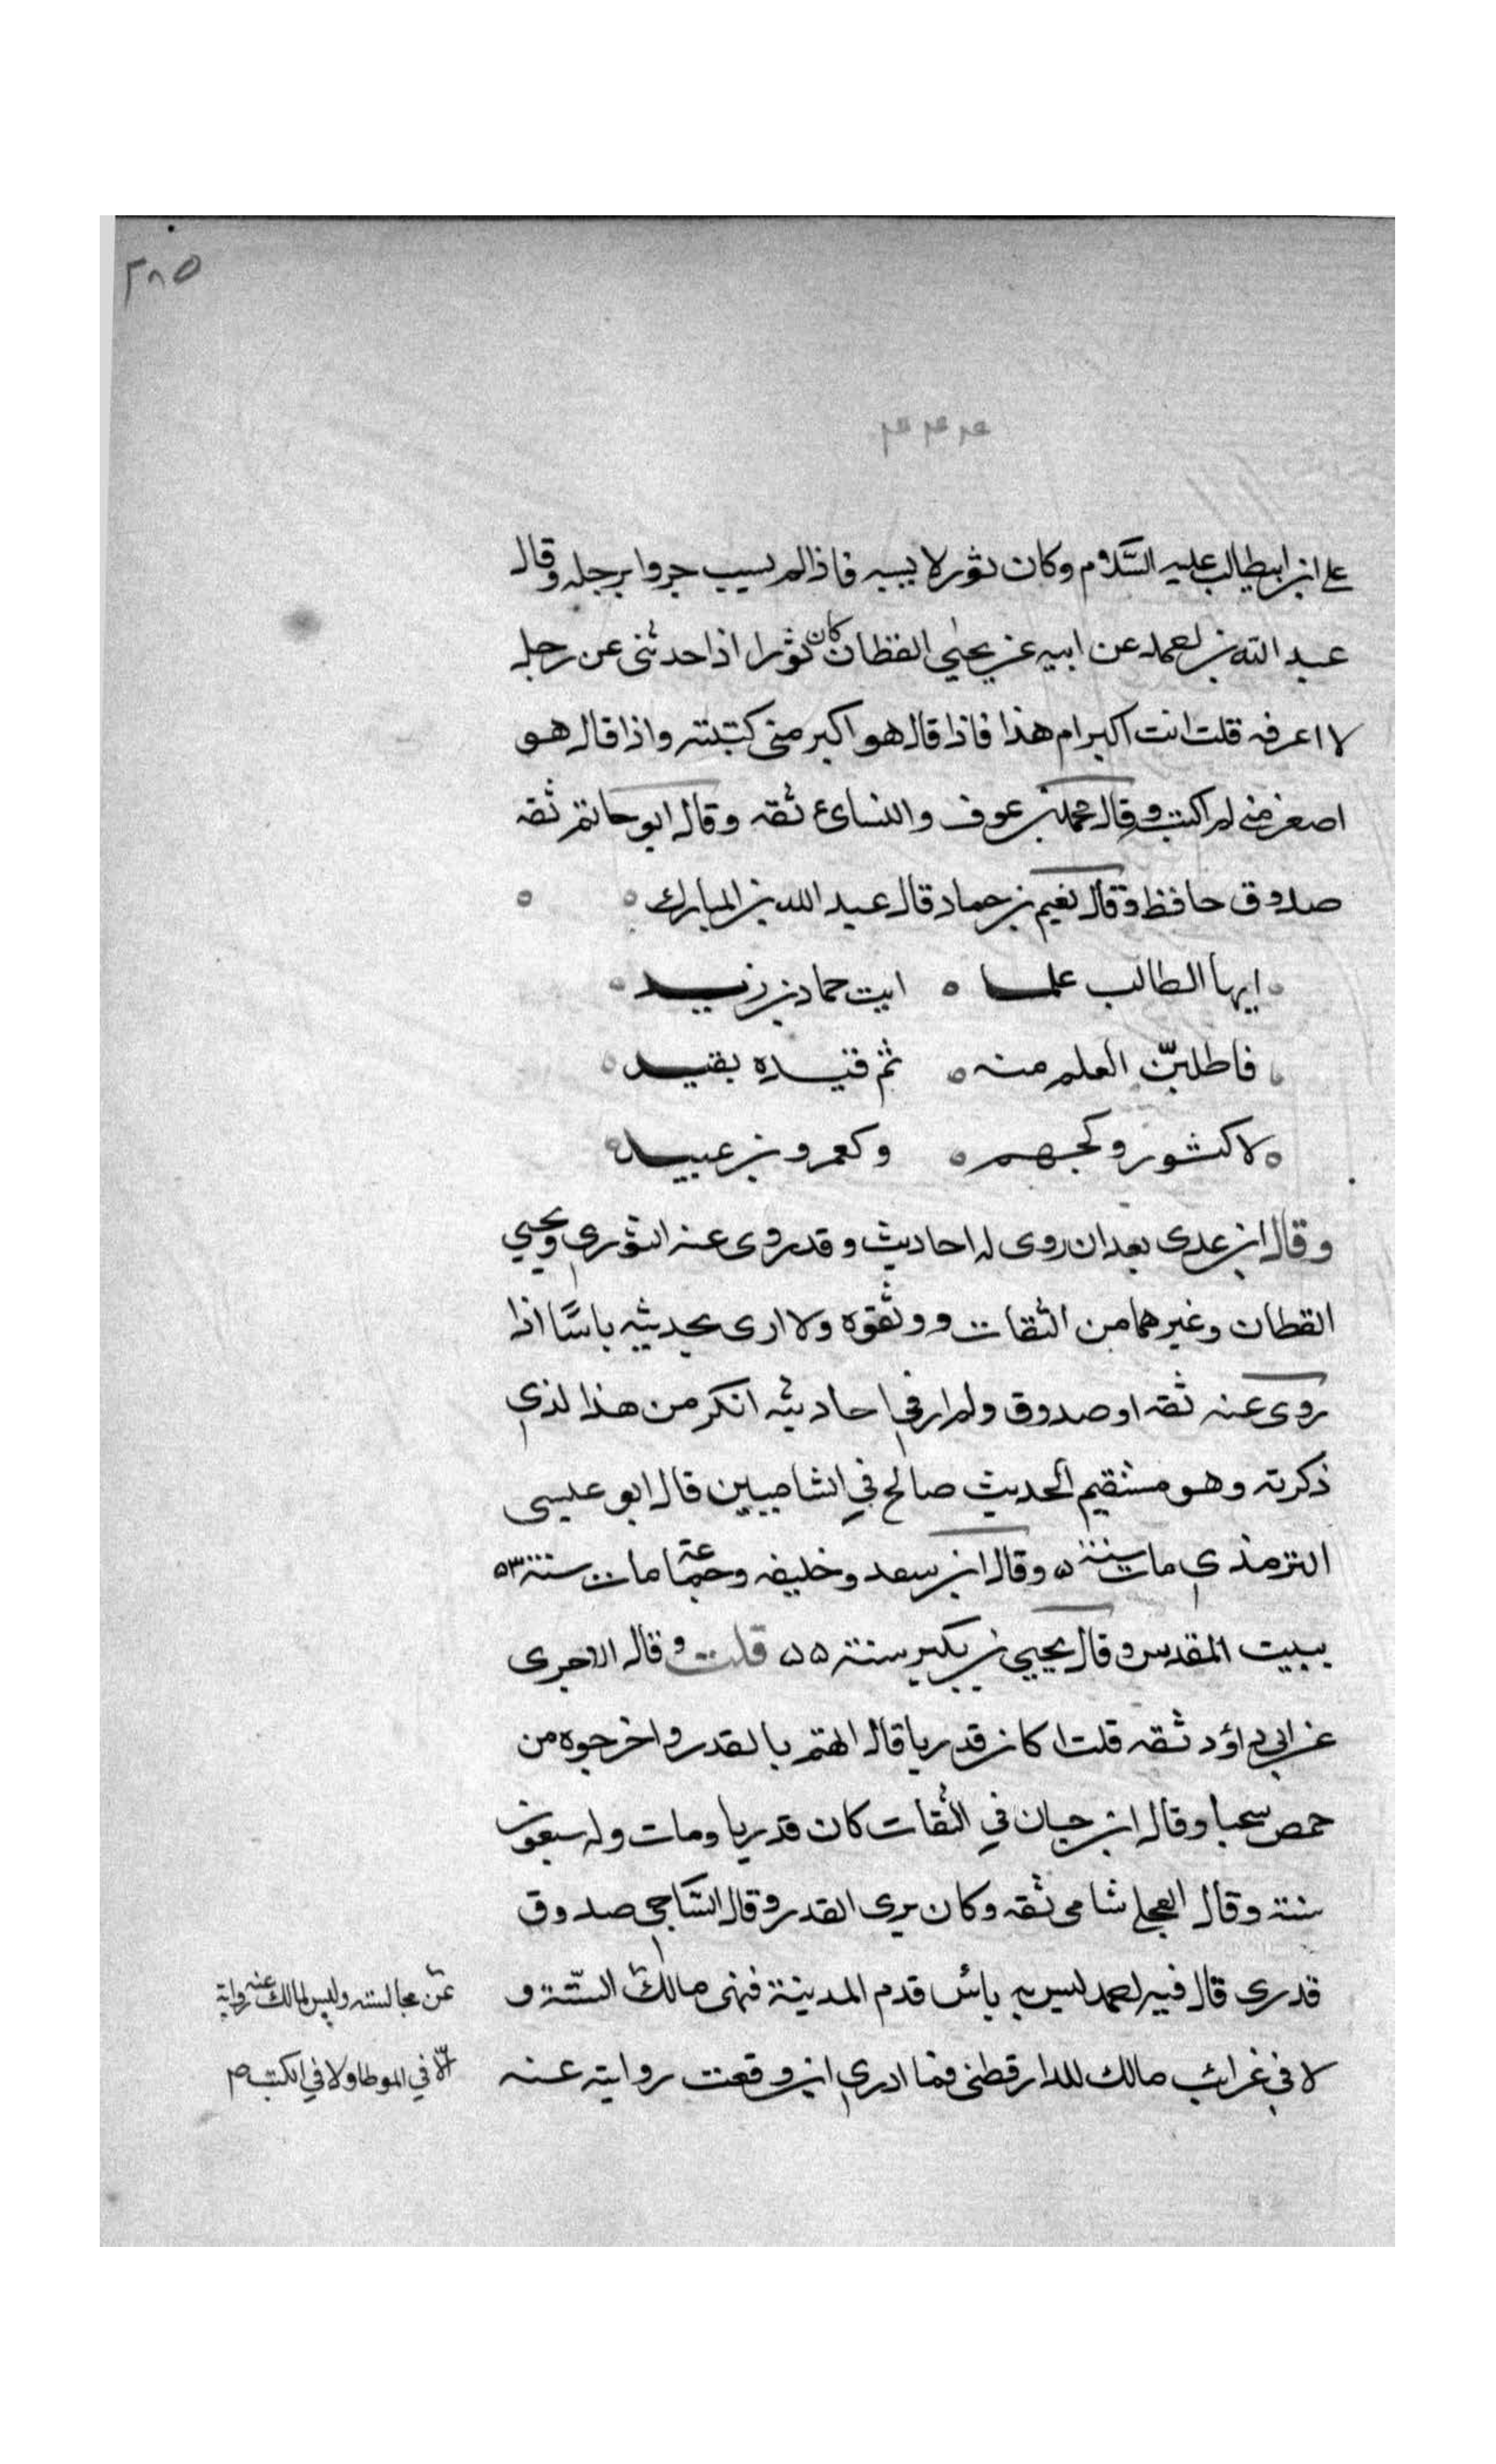 ٢٨٥
على ابن ابيطالب عليه السَّلام وكان ثور لا يسبه فاذا لم يسب جروا برجله وقال
عبد الله بن احمد عن ابيه عن يحيى القطان كان ثورا اذا حدثنى عن رجل
لا اعرفه قلت انت اكبر ام هذا فاذا قال هو اكبر منى كتبته واذا قال هو
اصغر منى لم اكتبه وقال محمد بن عوف والنسائ ثقه وقال ابو حاتم ثقه
صدوق حافظ وقال نعيم بن حماد قال عبد الله بن المبارك
ايها الطالب علما ٥ ايت حماد بن زيد
فاطلبنّ العلم منه ٥ ثم قيده بقيد
لا كثور وكجهم ٥ وكعمرو بن عبيد
وقال ابن عدى بعد ان روى له احاديث وقد روى عنه الثوري ويحيي
القطان وغيرهما من الثقات ووثقوه ولا ارى بحديثه باسًا اذا
روى عنه ثقه او صدوق ولم ار في احاديثه انكر من هذا لذي
ذكرته وهو مستقيم الحديث صالح في الشاميين قال ابو عيسى
الترمذي مات سنة ٥ وقال ابن سعد وخليفه وجماعة مات سنة ٥٣
ببيت المقدس وقال يحيي بن بكير سنة ٥٥ قلت وقال الاجرى
عن ابي داؤد ثقه قلت اكان قدريا قال اتهم بالقدر واخرجوه من
حمص سحبا وقال ابن حبان في الثقات كان قدريا ومات وله سبعون
سنة وقال العجلي شامى ثقه وكان يرى القدر وقال السَّاجي صدوق
قدري قال فيه احمد ليس به بائس قدم المدينة فنهى مالك السّتة و
عن مجالسته وليس لمالك عنه رواية
لا في غرائب مالك للدارقطنى فما ادري اين وقعت روايته عنه
الّا في الموطا ولا في الكتب ص